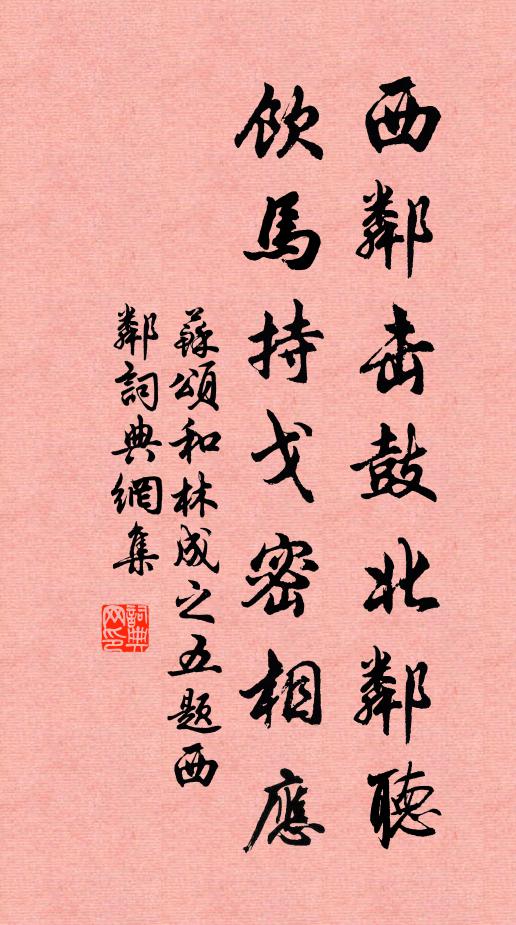 西鄰击鼓北鄰聽
飲馬持戈密相應
蘇頌和林成之五题西
鄰詞典網集
詞典网印